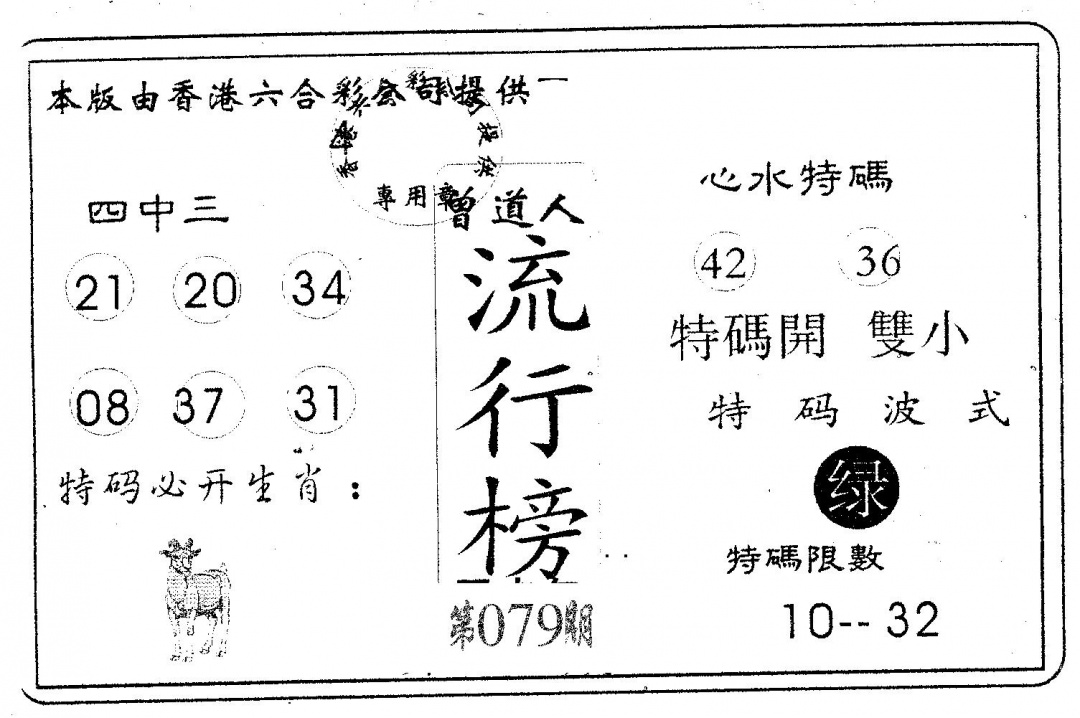 本版由香港六合彩公司提供
專用章
四中三
21 20 34
08 37 31
特码必开生肖：
曾道人
流行榜
第079期
心水特碼
42 36
特碼開 雙小
特码波式
绿
特碼限數
10--32